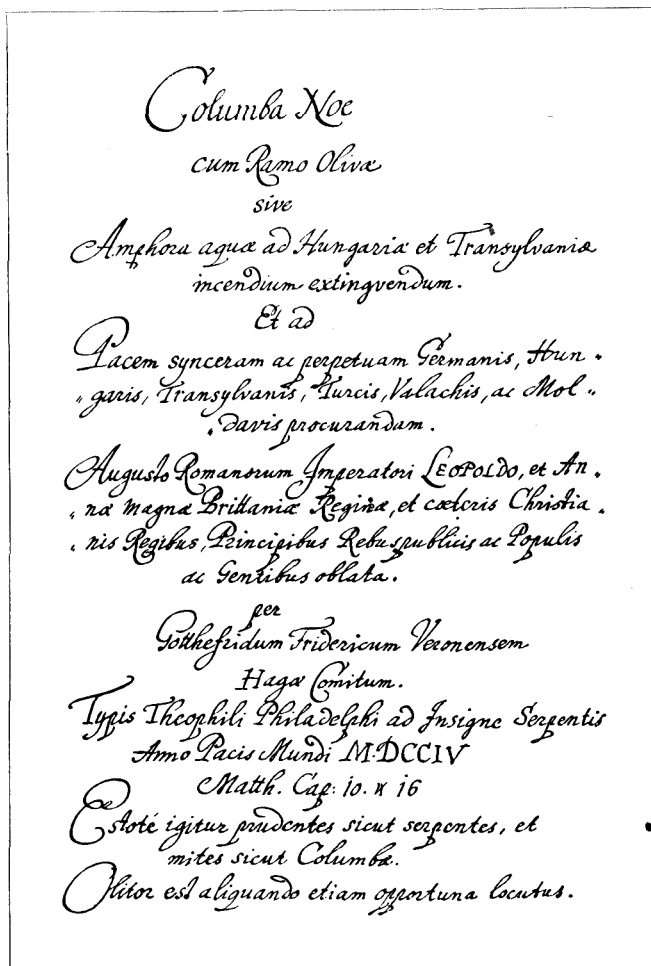 Columba Noe
cum Ramo Olivæ
sive
Amphora aquæ ad Hungariæ et Transylvaniæ
incendium extingvendum.
Et ad
Pacem synceram ac perpetuam Germanis, Hun„
„garis, Transylvanis, Turcis, Valachis, ac Mol„
„davis procurandam.
Augusto Romanorum Imperatori LEOPOLDO, et An„
„næ magnæ Brittaniæ Reginæ, et cæteris Christia„
„nis Regibus, Principibus Rebuspublicis ac Populis
ac Gentibus oblata.
per
Gotthefridum Fridericum Veronensem
Hagæ Comitum.
Typis Theophili Philadelphi ad Insigne Serpentis
Anno Pacis Mundi M.DCCIV
Matth. Cap: 10. ℣ 16
Estoté igitur prudentes sicut serpentes, et
mites sicut Columbæ.
Olitor est aliquando etiam opportuna locutus.